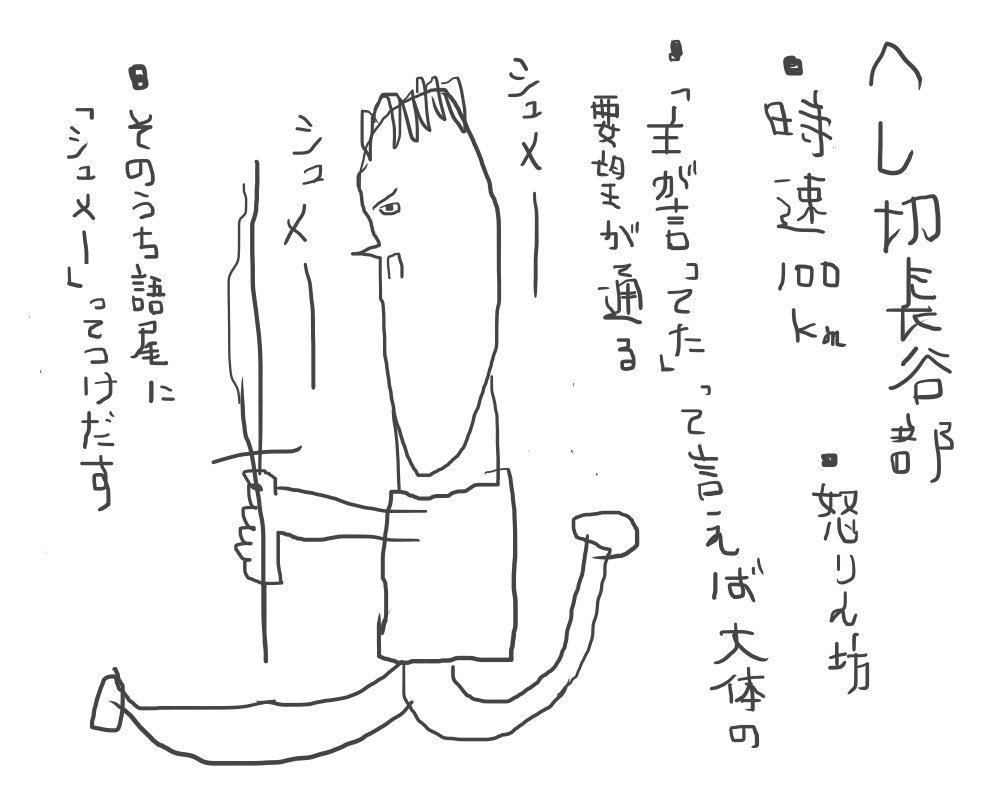 へし切長谷部
■怒りん坊
■時速100km
■「主が言ってた」って言えば大体の
要望が通る
シュメー
シュメー
■そのうち語尾に
「シュメー」ってつけだす